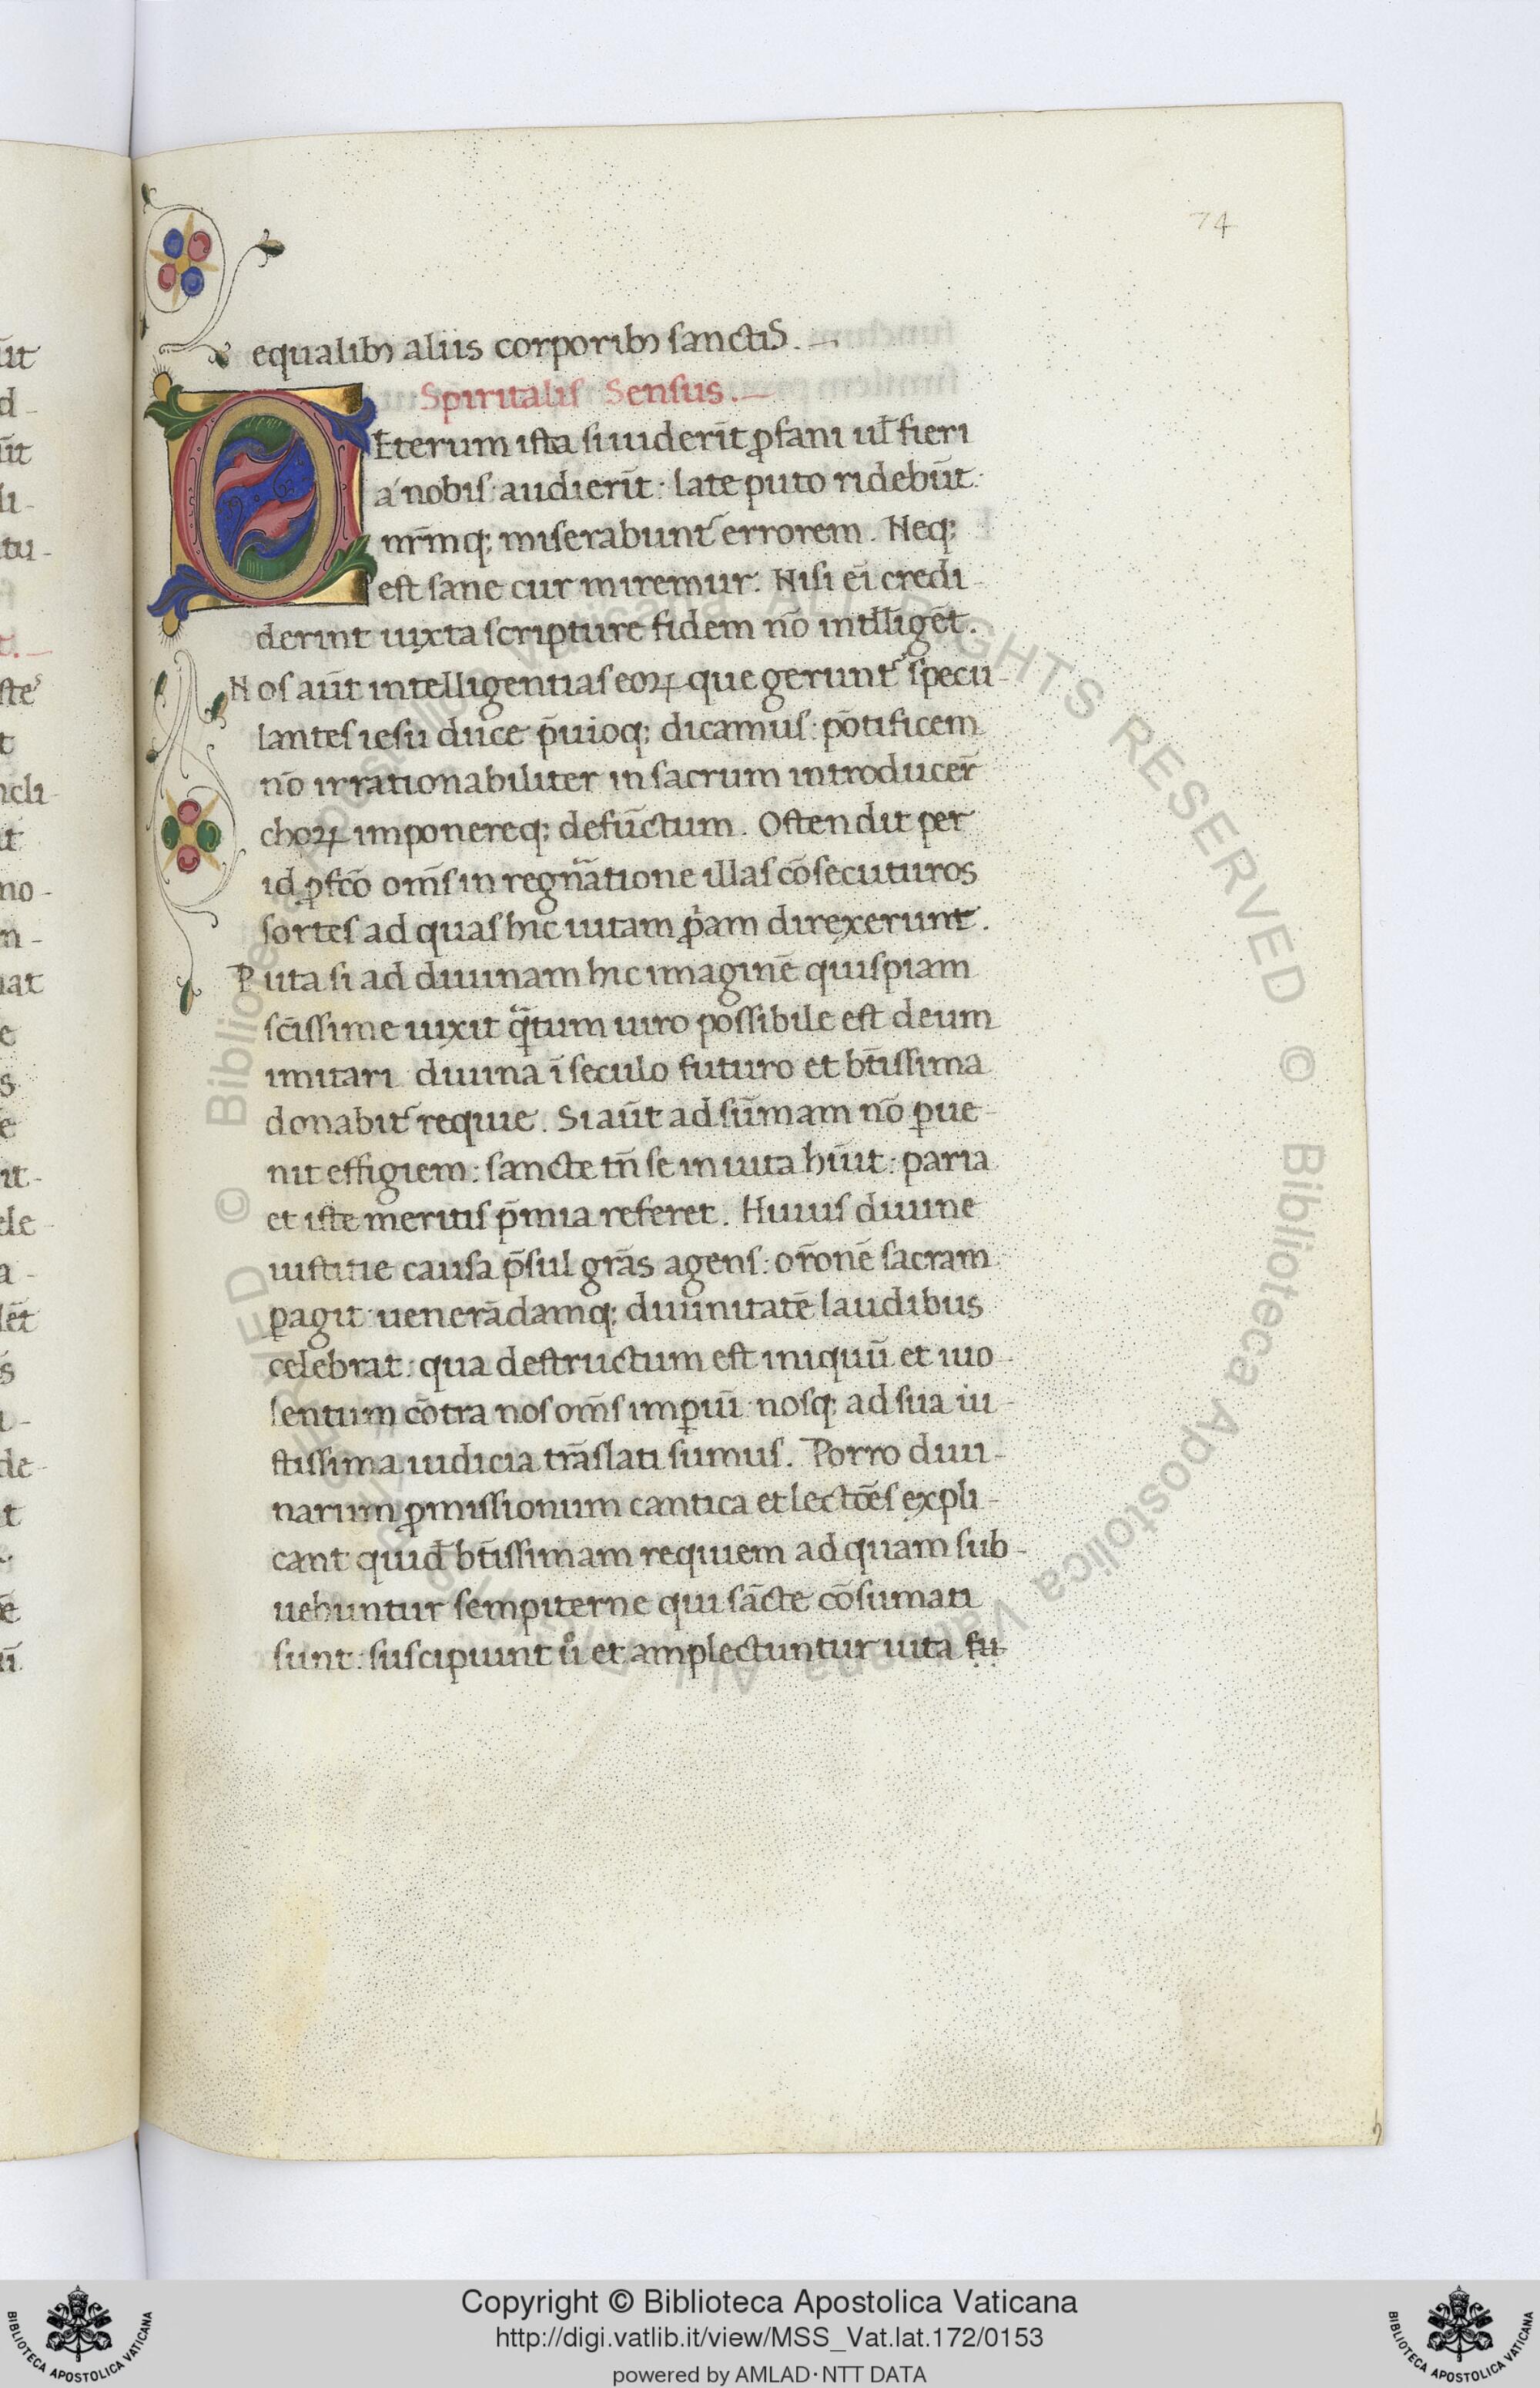 74
equalibꝫ aliis corporibꝫ sanctis.
Spiritalis Sensus.
CEterum ista si uiderīt ꝓfani ul̄ fieri
a nobis audierīt: late puto ridebūt:
nr̄mq; miserabunt᷑ errorem. Neq;
est sane cur miremur. Nisi eī credi
derint iuxta scripture fidem nō intll̄igēt.
Nos aūt intelligentias eoꝝ que gerunt᷑ specu-
lantes iesu duce p̄uioq; dicamus: pōtificem
nō irrationabiliter in sacrum introducer̄
choꝝ imponereq; defūctum. Ostendit per
id ꝓfc̄o om̄s in regn̄atione illas cōsecuturos
sortes ad quas hic uitam ꝓp̄am direxerunt.
Puta si ad diuinam hic imaginē quispiam
sc̄issime uixit qᷓtum uiro possibile est deum
imitari diuina ī seculo futuro et bt̄issima
donabit᷑ requie. Si aūt ad sūmam nō ꝑue-
nit effigiem: sancte tn̄ se in uita hūit: paria
et iste meritis p̄mia referet. Huius diuine
iustitie causa p̄sul grās agens: or̄onē sacram
ꝑagit uenerādamq; diuinitatē laudibus
celebrat: qua destructum est iniquū et uio-
lentum cōtra nos om̄s imꝑiū nosq; ad sua iu-
stissima iudicia trāslati sumus. Porro diui-
narum ꝓmissionum cantica et lectōes expli-
cant quid̄ bt̄issimam requiem ad quam sub-
uehuntur sempiterne qui sācte cōsumati
sunt: suscipiunt ů et amplectuntur uita fu-
Copyright © Biblioteca Apostolica Vaticana
http://digi.vatlib.it/view/MSS_Vat.lat.172/0153
powered by AMLAD·NTT DATA